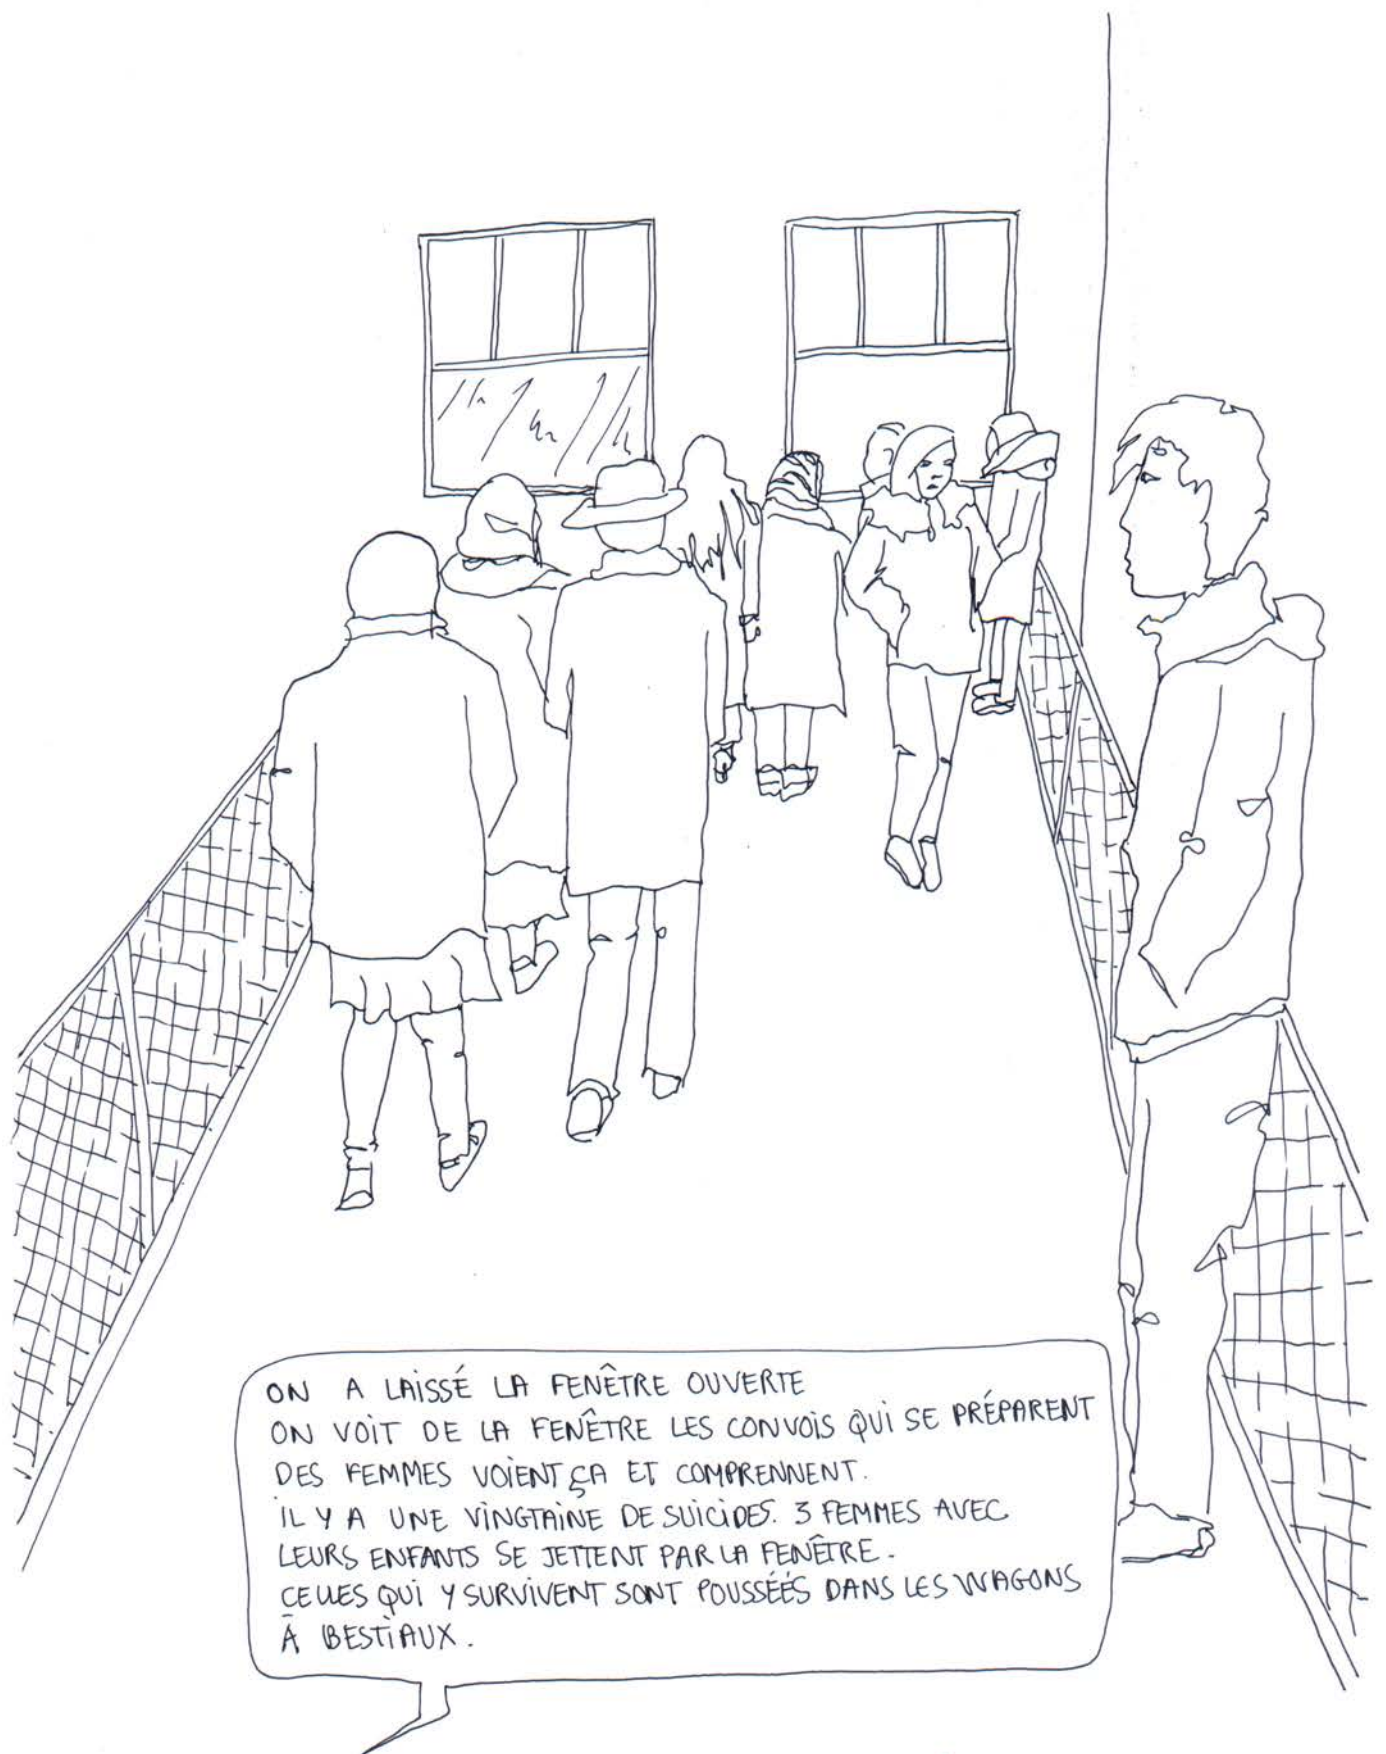 ON A LAISSÉ LA FENÊTRE OUVERTE
ON VOIT DE LA FENÊTRE LES CONVOIS QUI SE PRÉPARENT
DES FEMMES VOIENT ÇA ET COMPRENNENT.
IL Y A UNE VINGTAINE DE SUICIDES. 3 FEMMES AVEC
LEURS ENFANTS SE JETTENT PAR LA FENÊTRE.
CELLES QUI Y SURVIVENT SONT POUSSÉÉS DANS LES WAGONS
À BESTIAUX.